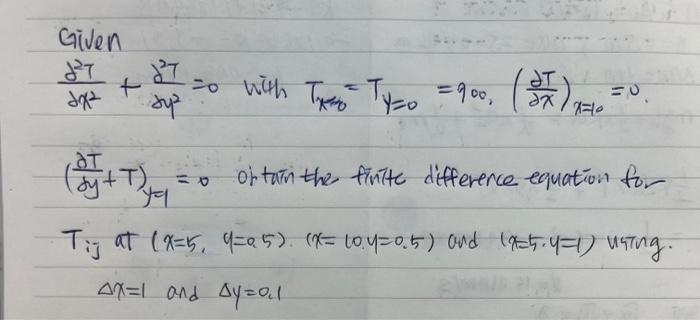 Given
∂²T/∂x² + ∂²T/∂y² = 0 with T_{x=0} = T_{y=0} = 900, (∂T/∂x)_{x=10} = 0.
(∂T/∂y + T)_{y=1} = 0 obtain the finite difference equation for
T_{ij} at (x=5, y=0.5). (x=10, y=0.5) and (x=5, y=1) using.
Δx=1 and Δy=0.1